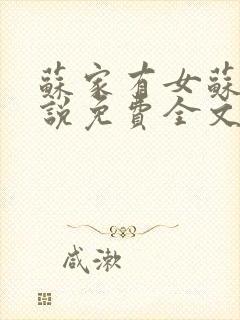 蘇家有女蘇
說免費全文
咸漱